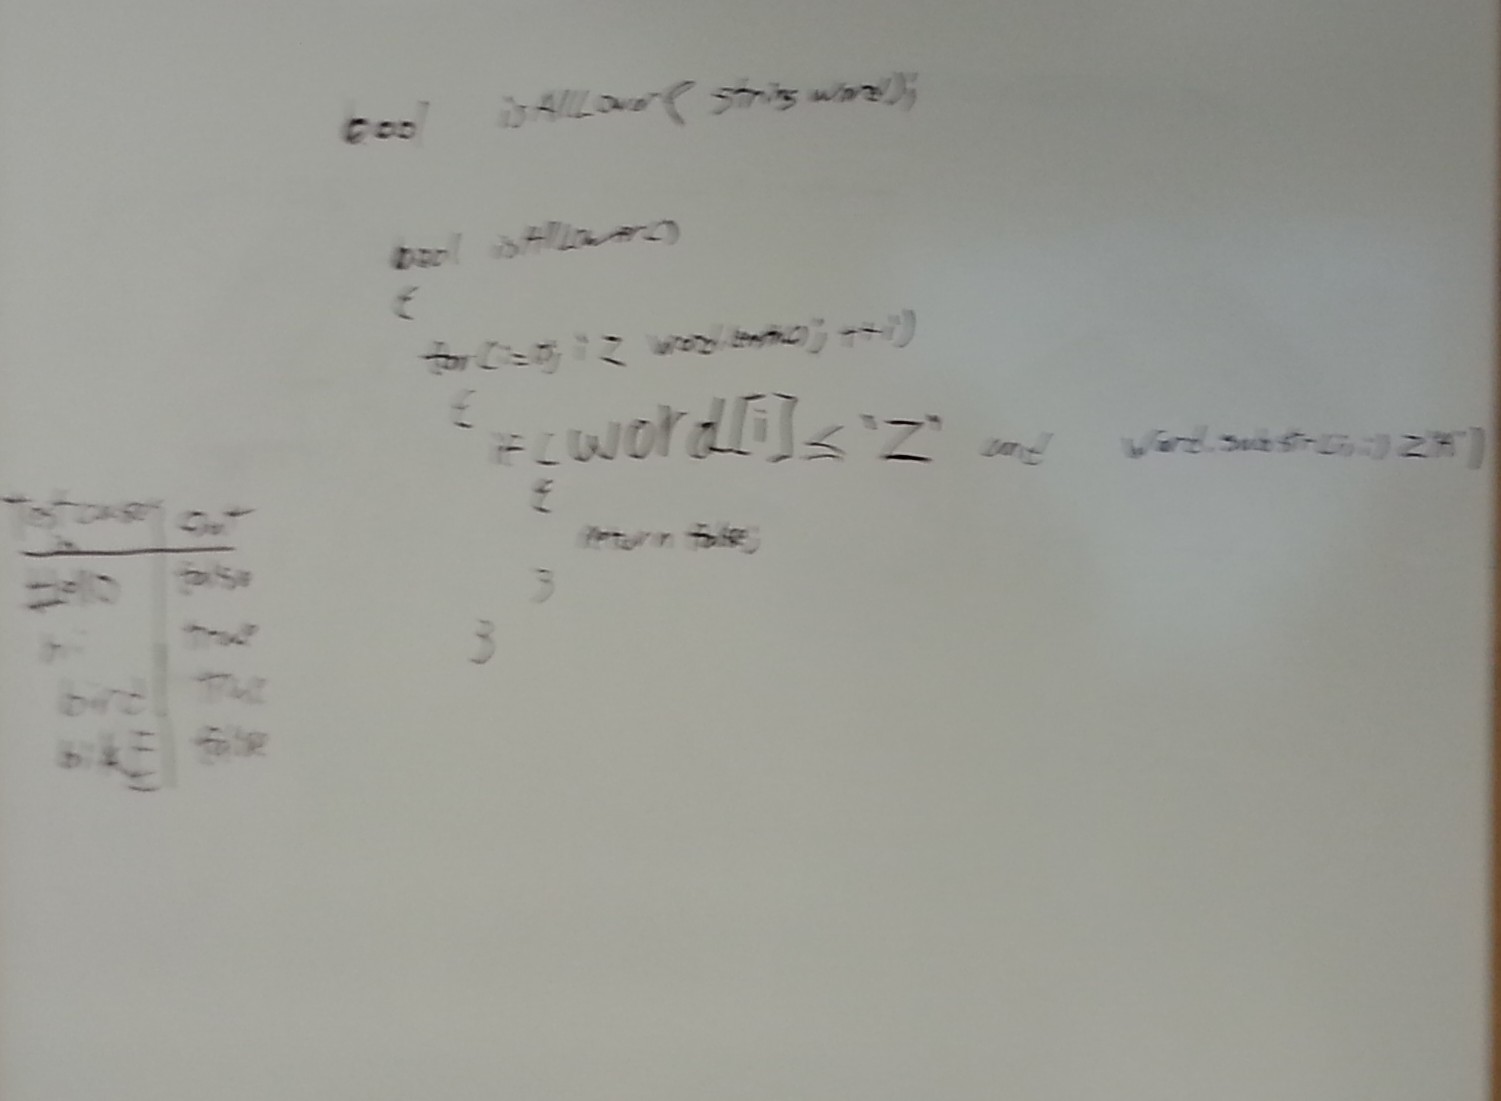 bool isAllLower( string word);
bool isAllLower()
{
for(i=0; i < word.length(); ++i)
{
if ( word[i] ≤ "Z" and word.substr(i,1)
{
return false;
}
}
Test cases out
in
Hello false
hi True
bird True
bikE false